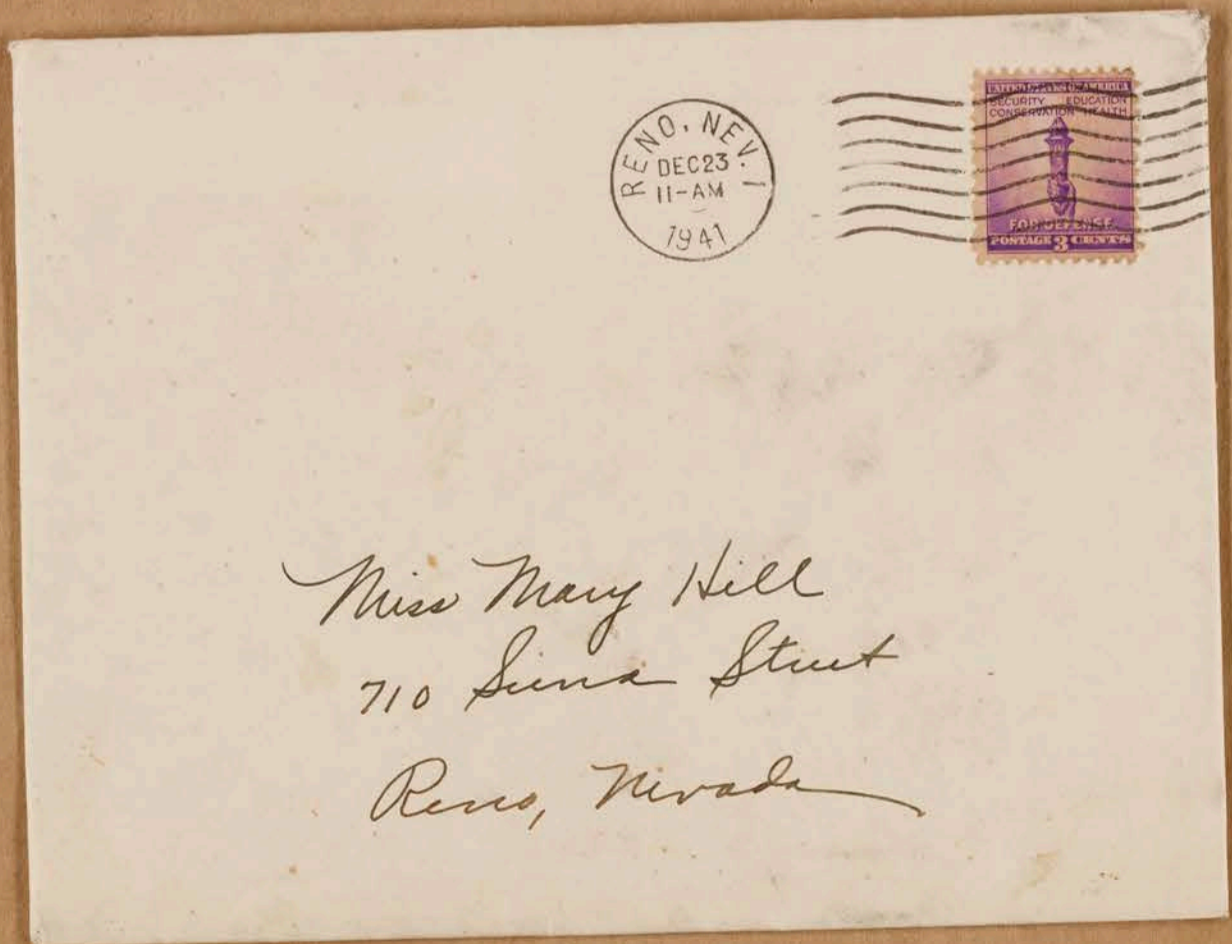 RENO, NEV. 1
DEC 23
11-AM
1941
UNITED STATES OF AMERICA
SECURITY EDUCATION
CONSERVATION HEALTH
FOR DEFENSE
POSTAGE 3 CENTS
Miss Mary Hill
710 Sierra Street
Reno, Nevada